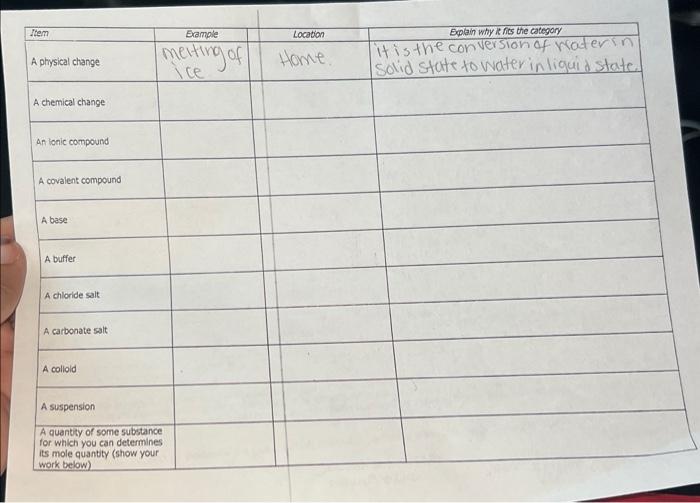 Item Example Location Explain why it fits the category
A physical change melting of ice Home. it is the conversion of water in solid state to water in liquid state.
A chemical change
An ionic compound
A covalent compound
A base
A buffer
A chloride salt
A carbonate salt
A colloid
A suspension
A quantity of some substance
for which you can determines
its mole quantity (show your
work below)